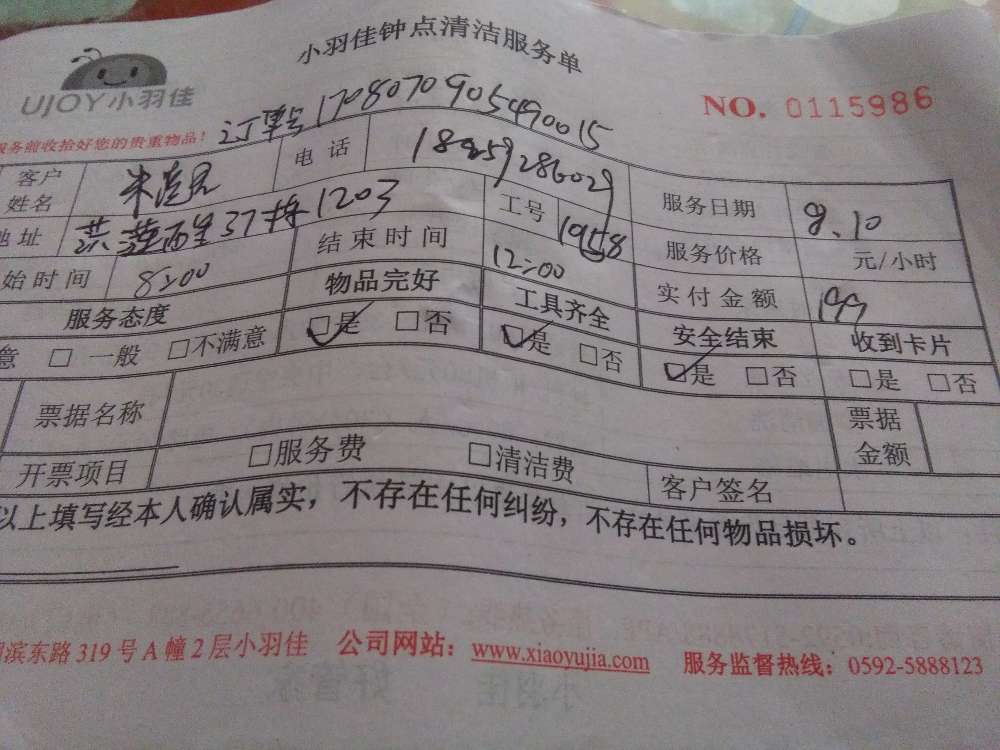 小羽佳钟点清洁服务单
UJOY小羽佳
NO. 0115986
服务前收拾好您的贵重物品! 订单号1708070905490015
客户姓名 电话 18959286029 服务日期 8.10
地址 37栋1203 工号 1958 服务价格 元/小时
始时间 8:00 结束时间 12:00 实付金额 199
服务态度 物品完好 工具齐全 安全结束 收到卡片
意 □ 一般 □不满意 ☑是 □否 ☑是 □否 ☑是 □否 □是 □否
票据名称 票据金额
开票项目 □服务费 □清洁费 客户签名
以上填写经本人确认属实，不存在任何纠纷，不存在任何物品损坏。
滨东路319号A幢2层小羽佳 公司网站：www.xiaoyujia.com 服务监督热线：0592-5888123